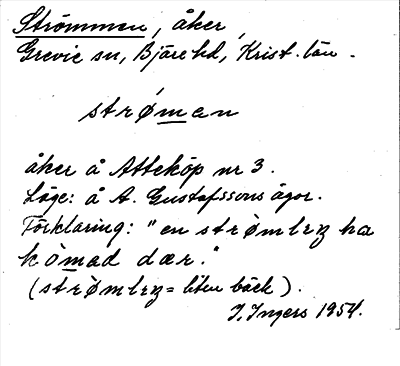 Strömmen, åker,
Grevie sn, Bjäre hd, Krist. län.
strǿmen
åker å Atteköp nr 3.
Läge: å A. Gustafssons ägor.
Förklaring: "en strømlıŋ ha
kòmad dær."
(strømlıŋ = liten bäck).
I. Ingers 1954.